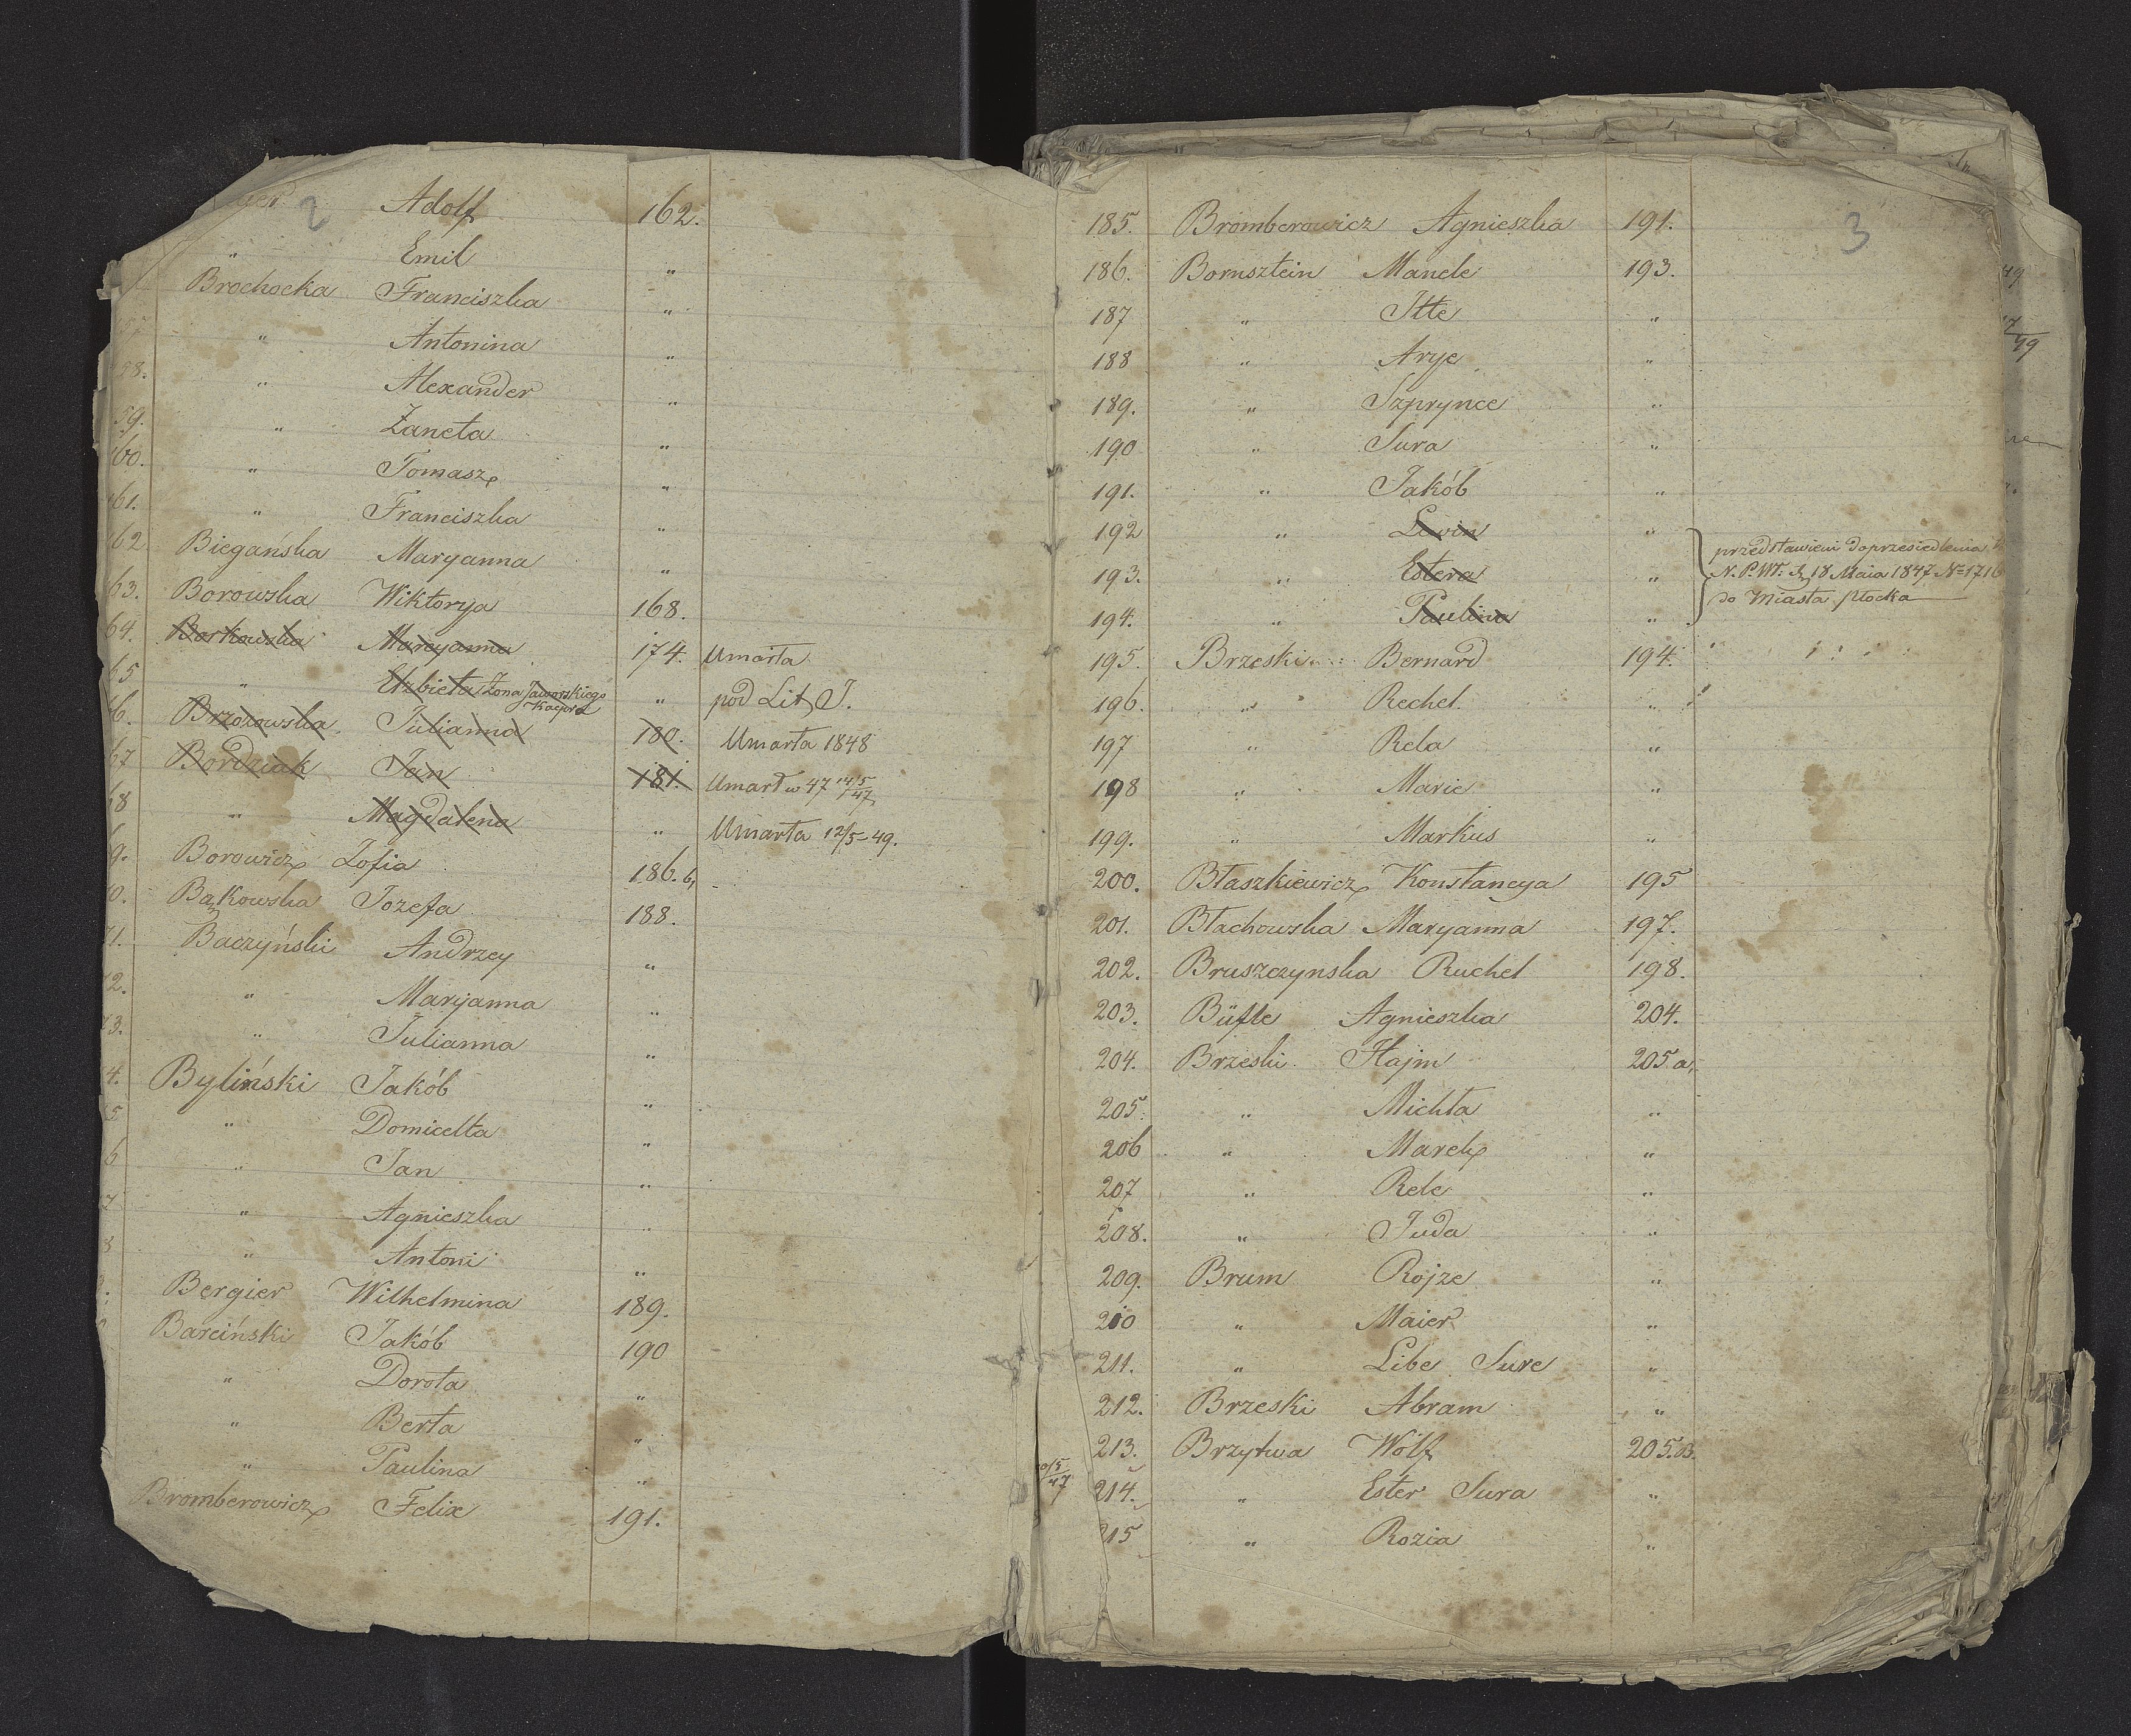 2
Adolf 162.
" Emil "
Brochocka Franciszka "
" Antonina "
58. " Alexander "
59. " Żaneta "
160. " Tomasz "
161. " Franciszka "
162 Biegańska Maryanna "
63. Borowska Wiktorya 168.
64. Borkowska Maryanna 174. Umarła
65 " Elżbieta Żona Jaworskiego Kacpra " pod Lit. J.
6. Brzozowska Julianna 180. Umarła 1848
67 Bordziak Jan 181. Umarł w 47 14/5/47
68 " Magdalena " Umarła 12/5-49.
9. Borowicz Zofia 186.b,
0. Bąkowska Jozefa 188.
71. Baczyński Andrzey "
2. " Maryanna "
73. " Julianna "
4. Byliński Jakób "
5 " Domicella "
6 " Jan "
7 " Agnieszka "
8 " Antoni "
Bergier Wilhelmina 189.
Barciński Jakób 190
" Dorota "
" Berta "
" Paulina "
Bromberowicz Felix 191.
3
185. Bromberowicz Agnieszka 191.
186. Bornsztein Manele 193.
187 " Itte "
188 " Arye "
189. " Szprynce "
190 " Sura "
191. " Jakób "
192 " Lewin "
193. " Estera "
194. " Paulina "
przedstawieni do przesiedlenia
N. P. W. 18 Maia 1847 No 1716
do Miasta Płocka
195. Brzeski Bernard 194.
196. " Rechel. "
197 " Rela "
198 " Marie "
199. " Markus "
200. Błaszkiewicz Konstancya 195
201. Błachowska Maryanna 197.
202. Bruszczynska Ruchel 198.
203. Büfle Agnieszka 204.
204. Brzeski Hajm 205.a,
205. " Michla "
206 " Marek "
207 " Rele "
208. " Juda "
209. Brum Rojze "
210 " Maier "
211. " Libe Sure "
212. Brzeski Abram "
213. Brzytwa Wolf 205.B.
214. " Ester Sura "
215 " Rozia "